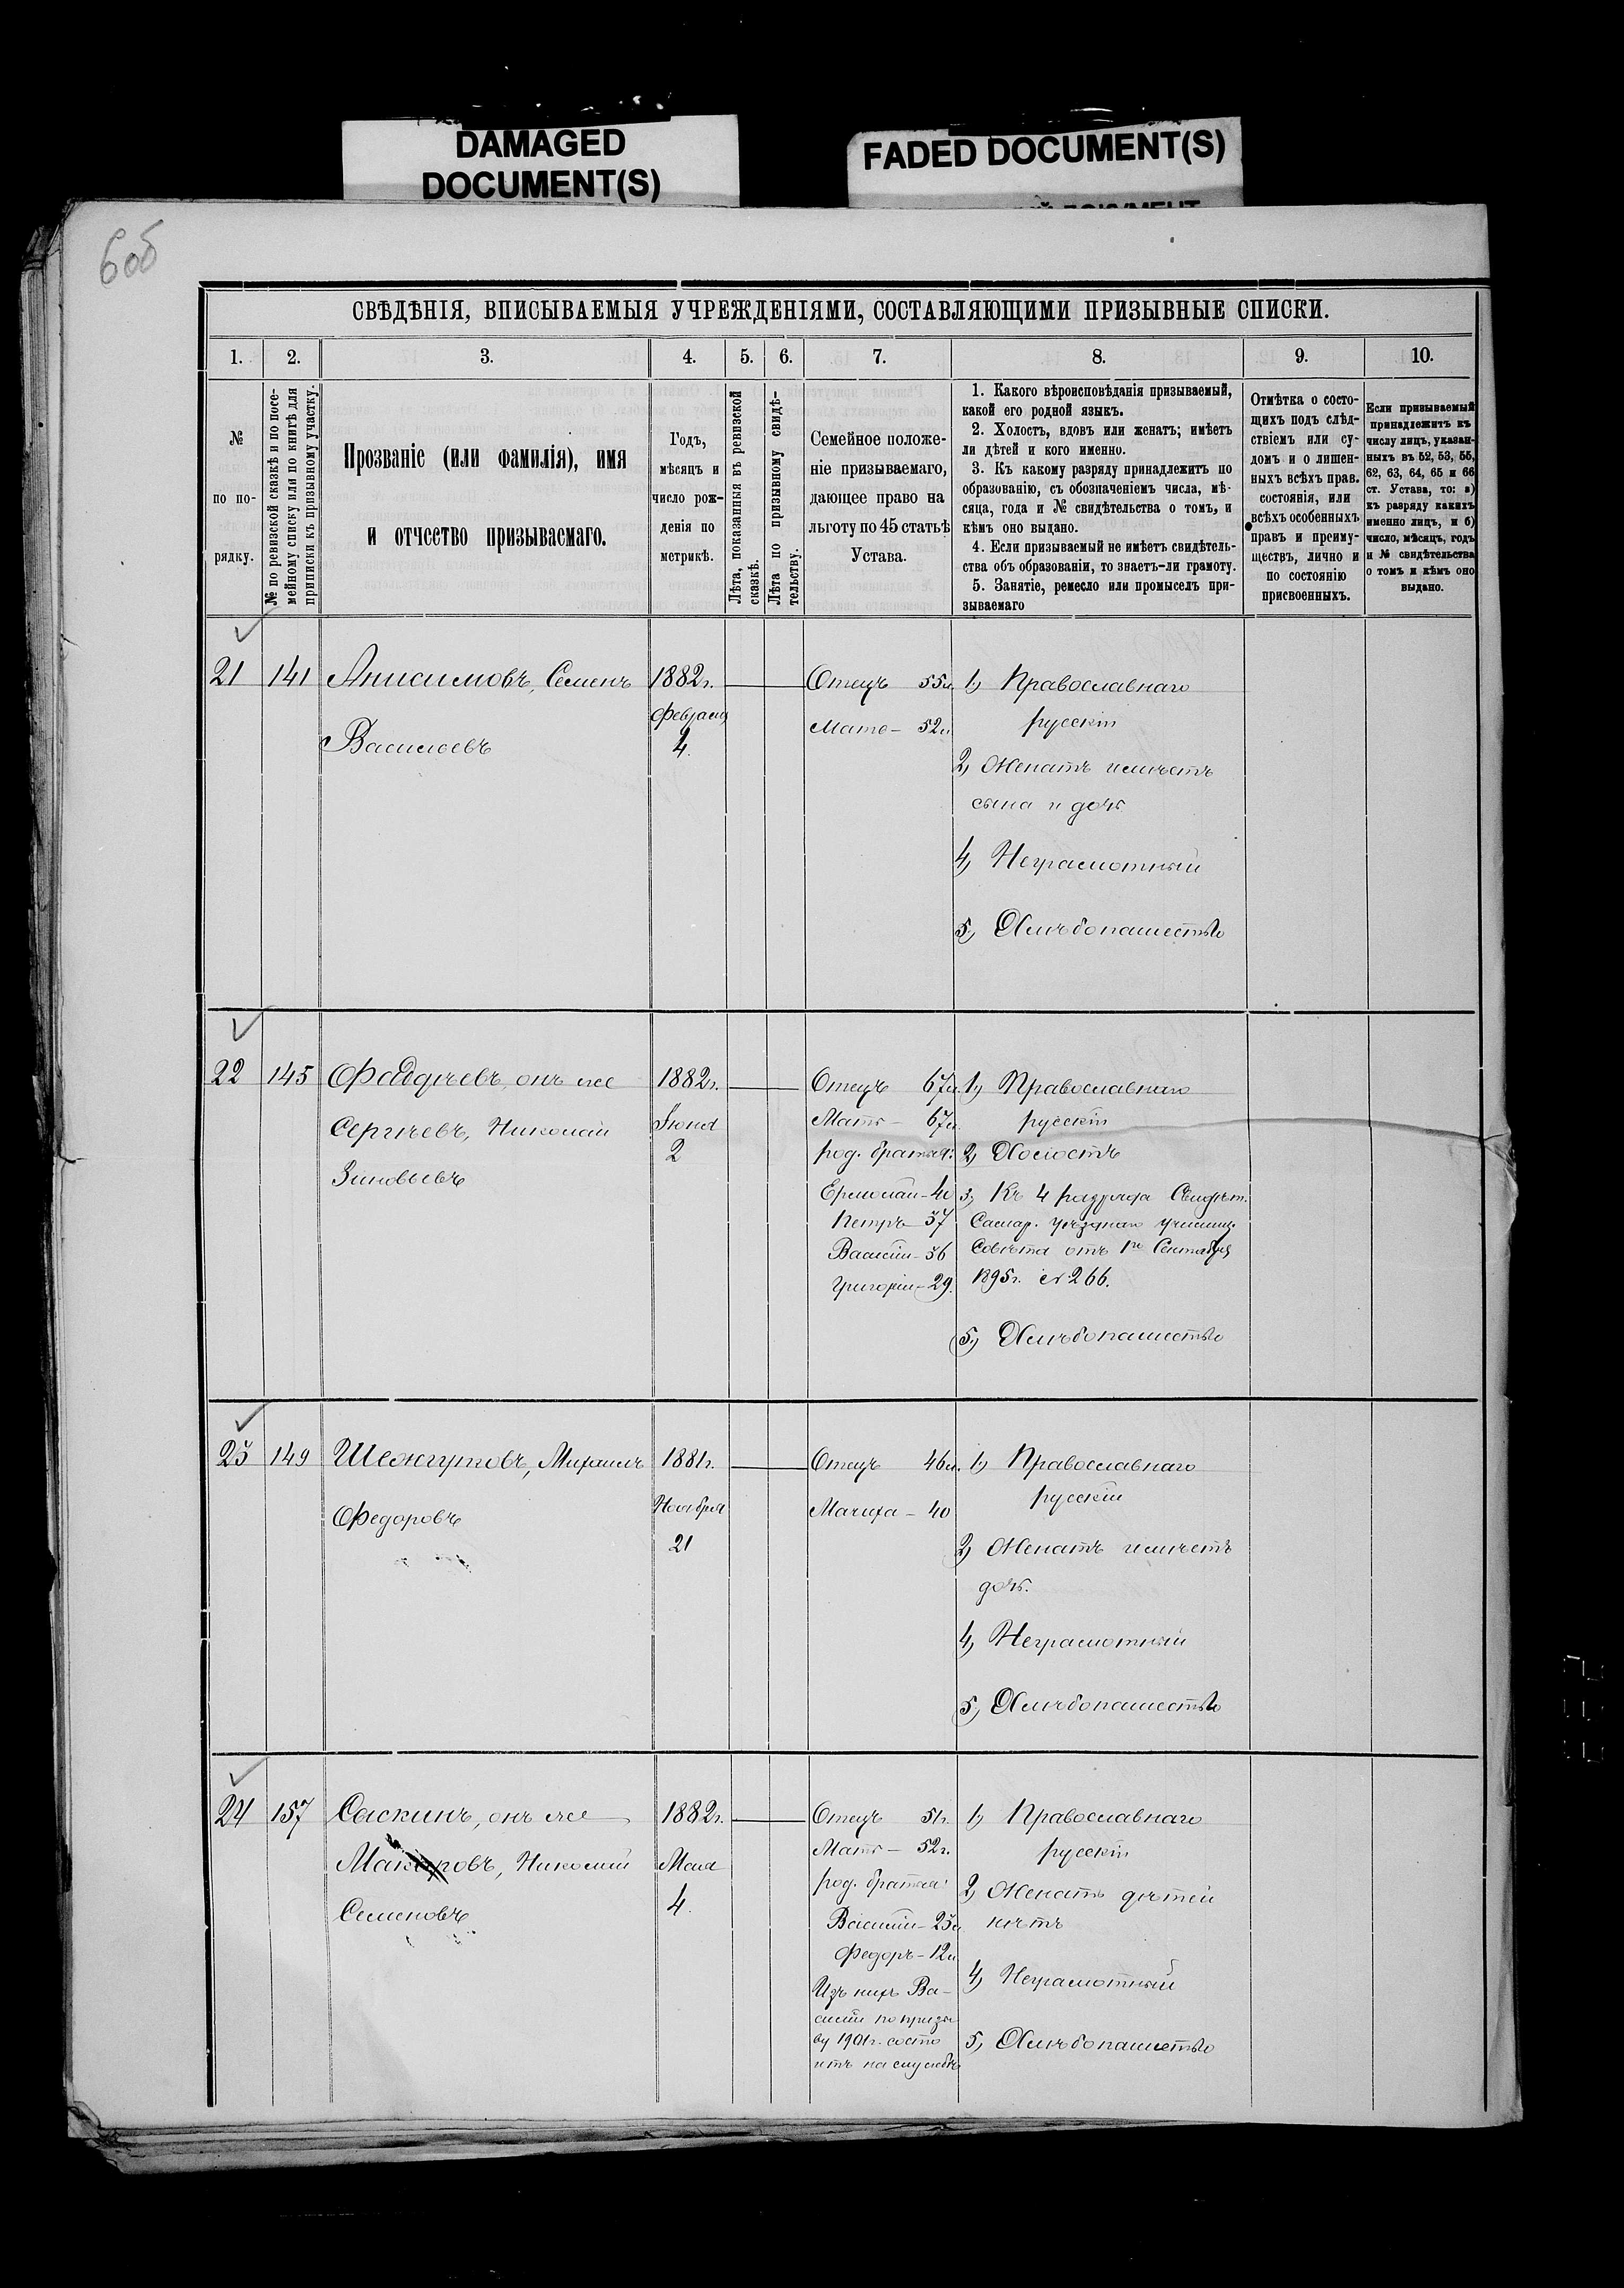 DAMAGED
DOCUMENT(S)
FADED DOCUMENT(S)
6об
СВѢДѢНІЯ, ВПИСЫВАЕМЫЯ УЧРЕЖДЕНІЯМИ, СОСТАВЛЯЮЩИМИ ПРИЗЫВНЫЕ СПИСКИ.
1. 2. 3. 4. 5. 6. 7. 8. 9. 10.
№
по по-
рядку.
№ по ревизской сказкѣ и по посе-
мейному списку или по книгѣ для
приписки къ призывному участку.
Прозваніе (или фамилія), имя
и отчество призываемаго.
Годъ,
мѣсяцъ и
число рож-
денія по
метрикѣ.
Лѣта, показанныя въ ревизской
сказкѣ.
Лѣта по призывному свидѣ-
тельству.
Семейное положе-
ніе призываемаго,
дающее право на
льготу по 45 статьѣ
Устава.
1. Какого вѣроисповѣданія призываемый,
какой его родной языкъ.
2. Холостъ, вдовъ или женатъ; имѣетъ
ли дѣтей и кого именно.
3. Къ какому разряду принадлежитъ по
образованію, съ обозначеніемъ числа, мѣ-
сяца, года и № свидѣтельства о томъ, и
кѣмъ оно выдано.
4. Если призываемый не имѣетъ свидѣтель-
ства объ образованіи, то знаетъ-ли грамоту.
5. Занятіе, ремесло или промыселъ при-
зываемаго
Отмѣтка о состо-
щихъ подъ слѣд-
ствіемъ или су-
домъ и о лишен-
ныхъ всѣхъ прав.
состоянія, или
всѣхъ особенныхъ
правъ и преиму-
ществъ, лично и
по состоянію
присвоенныхъ.
Если призываемый
принадлежитъ къ
числу лицъ, указан-
ныхъ въ 52, 53, 55,
62, 63, 64, 65 и 66
ст. Устава, то: а)
къ разряду какихъ
именно лицъ, и б)
число, мѣсяцъ, годъ
и № свидѣтельства
о томъ и кѣмъ оно
выдано.
21 141 Анисимовъ, Семенъ
Васильевъ
1882г.
Февраля
4.
Отецъ 55л.
Мать - 52л.
1) Православнаго
русскій
2) Женатъ имѣетъ
сына и дочь
4) Неграмотный
5) Хлѣбопашество
22 145 Фаддѣевъ, онъ же
Сергѣевъ, Николай
Зиновьевъ
1882г.
Іюня
2
Отецъ 67л.
Мать - 67л.
род. братья:
Ермолай - 40
Петръ - 37
Василій - 36
Григорій - 29.
1) Православнаго
русскій
2) Холостъ
3) Къ 4 разряда Свидѣт.
Самар. Уѣзднаго Училищ.
Совѣта отъ 1го Сентября
1895г. № 266.
5) Хлѣбопашество
23 149 Шежгутовъ, Михаилъ
Федоровъ
1881г.
Ноября
21
Отецъ 46л.
Мачиха - 40
1) Православнаго
русскій
2) Женатъ имѣетъ
дочь.
4) Неграмотный
5) Хлѣбопашество
24 157 Саскинъ, онъ же
Макаровъ, Николай
Семеновъ
1882г.
Мая
4.
Отецъ 51г.
Мать - 52г.
род. братья:
Василій - 23л
Федоръ - 12л
Изъ нихъ Ва-
силій по призы
ву 1901г. состо
итъ на службѣ
1) Православнаго
русскій
2) Женатъ дѣтей
нѣтъ
4) Неграмотный
5) Хлѣбопашество